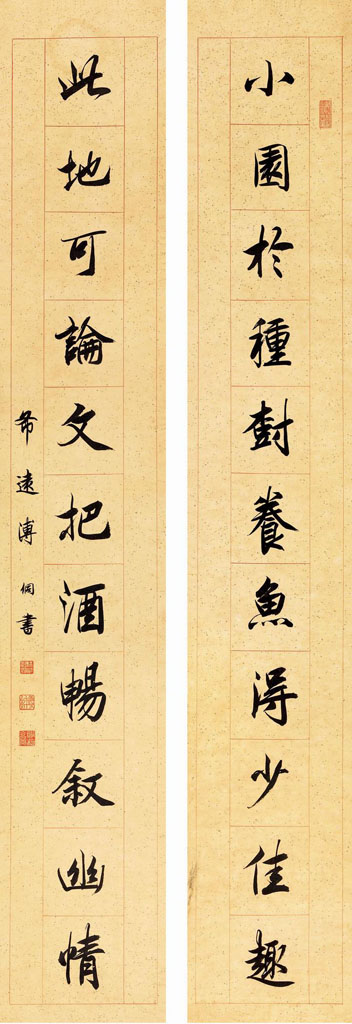 小園於種尌養魚淂少佳趣
此地可論文把酒暢叙幽情
希遠溥僩書